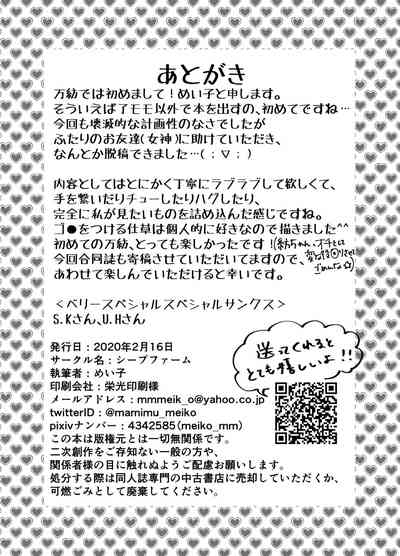 あとがき
万紡では初めまして！めい子と申します。
そういえば了モモ以外で本を出すの、初めてですね…
今回も壊滅的な計画性のなさでしたが
ふたりのお友達(女神)に助けていただき、
なんとか脱稿できました…( ; ▽ ; )
内容としてはとにかく丁寧にラブラブして欲しくて、
手を繋いだりチューしたりハグしたり、
完全に私が見たいものを詰め込んだ感じですね。
ゴ●をつける仕草は個人的に好きなので描きました^^
初めての万紡、とっても楽しかったです！
今回合同誌も寄稿させていただいてますので、
あわせて楽しんでいただけると幸いです。
＜ベリースペシャルスペシャルサンクス＞
S.Kさん、U.Hさん
送ってくれると
とても嬉しいよ!!
発行日：2020年2月16日
サークル名：シープファーム
執筆者：めい子
印刷会社：栄光印刷様
メールアドレス：mmmeik_o@yahoo.co.jp
twitterID：@mamimu_meiko
pixivナンバー：4342585(meiko_mm)
この本は版権元とは一切無関係です。
二次創作をご存知ない一般の方や、
関係者様の目に触れぬようご配慮お願いします。
処分する際は同人誌専門の中古書店に売却していただくか、
可燃ごみとして廃棄してください。